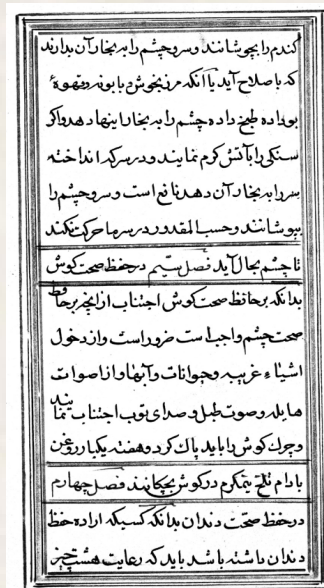 کندم را بجوشانند و سر و چشم را به بخار آن بدارند
که باصلاح آید یا آنکه مرزنجوش و بابونه و قهوهٔ
بوداده طبخ داده چشم را به بخار اینها دهد و اکر
سنکی را بآتش کرم نمایند و در سرکه انداخته
سر را به بخار آن دهد نافع است و سر و چشم را
بپوشانند و حسب المقدور در سرما حرکت نکند
تا چشم بحال آید فصل سیّم در حفظ صحت کوش
بدانکه بر حافظ صحت کوش اجتناب از آنچه بر حافظ
صحت چشم واجب است ضرور است و از دخول
اشیاء غریبه و حیوانات و آبها و از اصوات
هایله و صوت طبل و صدای توپ اجتناب نمایند
و چرک کوش را باید پاک کرد و هفته یکبار روغن
بادام تلخ نیمکرم در کوش بچکانند فصل چهارم
در حفظ صحت دندان بدانکه کسیکه اراده حفظ
دندان داشته باشد باید که رعایت هشت چیز